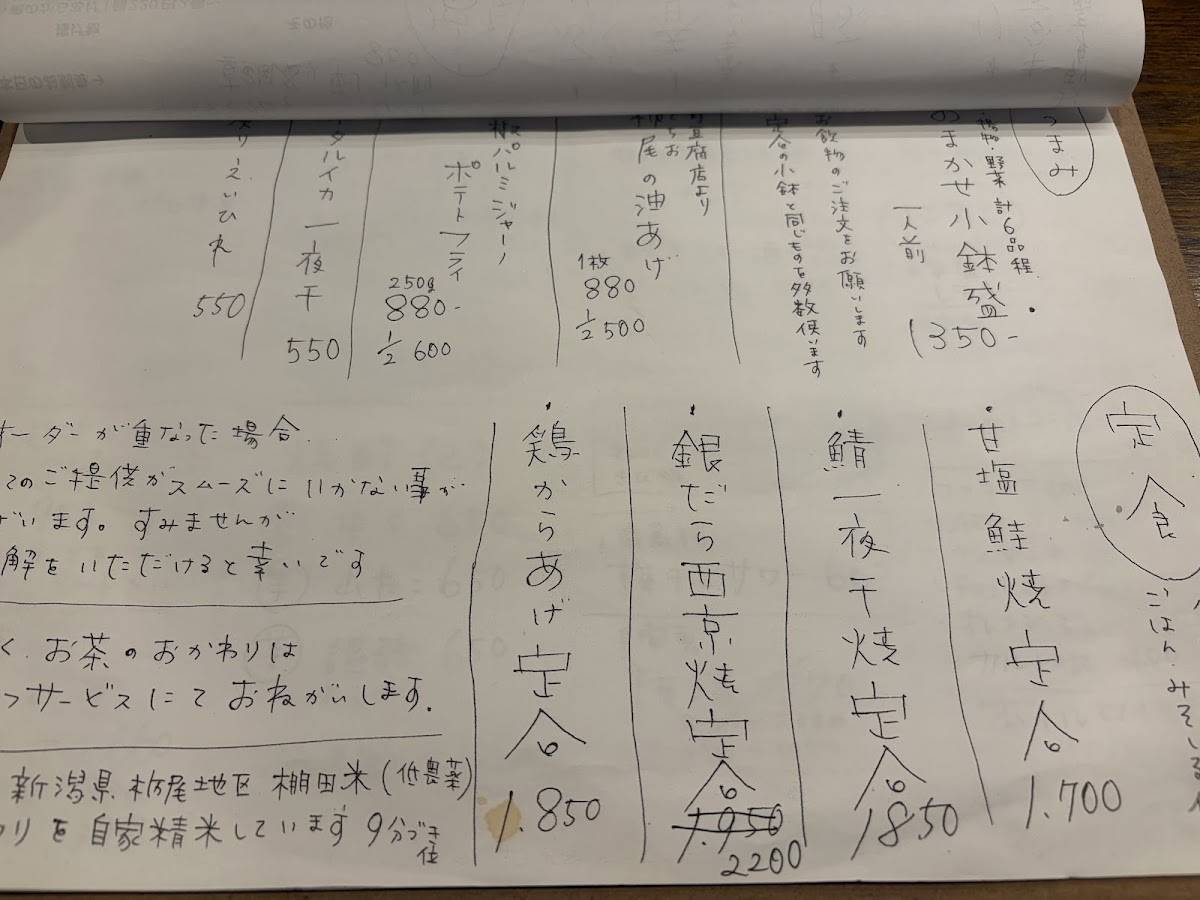 つまみ
・揚物・野菜 計6品程
のまかせ小鉢盛
一人前
1350-
お飲物のご注文をお願いします
定食の小鉢と同じものを多数使います
豆腐店より
栃尾の油あげ
1枚 880
1/2 500
パルミジャーノ
ポテトフライ
250g
880-
1/2 600
タルイカ一夜干
550
えいひれ
550
定食
ごはん・みそしる
・甘塩鮭焼定食
1.700
・鯖一夜干焼定食
1850
・銀だら西京焼定食
1.950
2200
・鶏からあげ定食
1.850
オーダーが重なった場合
てのご提供がスムーズにいかない事が
ざいます。すみませんが
解をいただけると幸いです
く、お茶のおかわりは
フサービスにておねがいします。
新潟県栃尾地区 棚田米(低農薬)
りを自家精米しています 9分づき